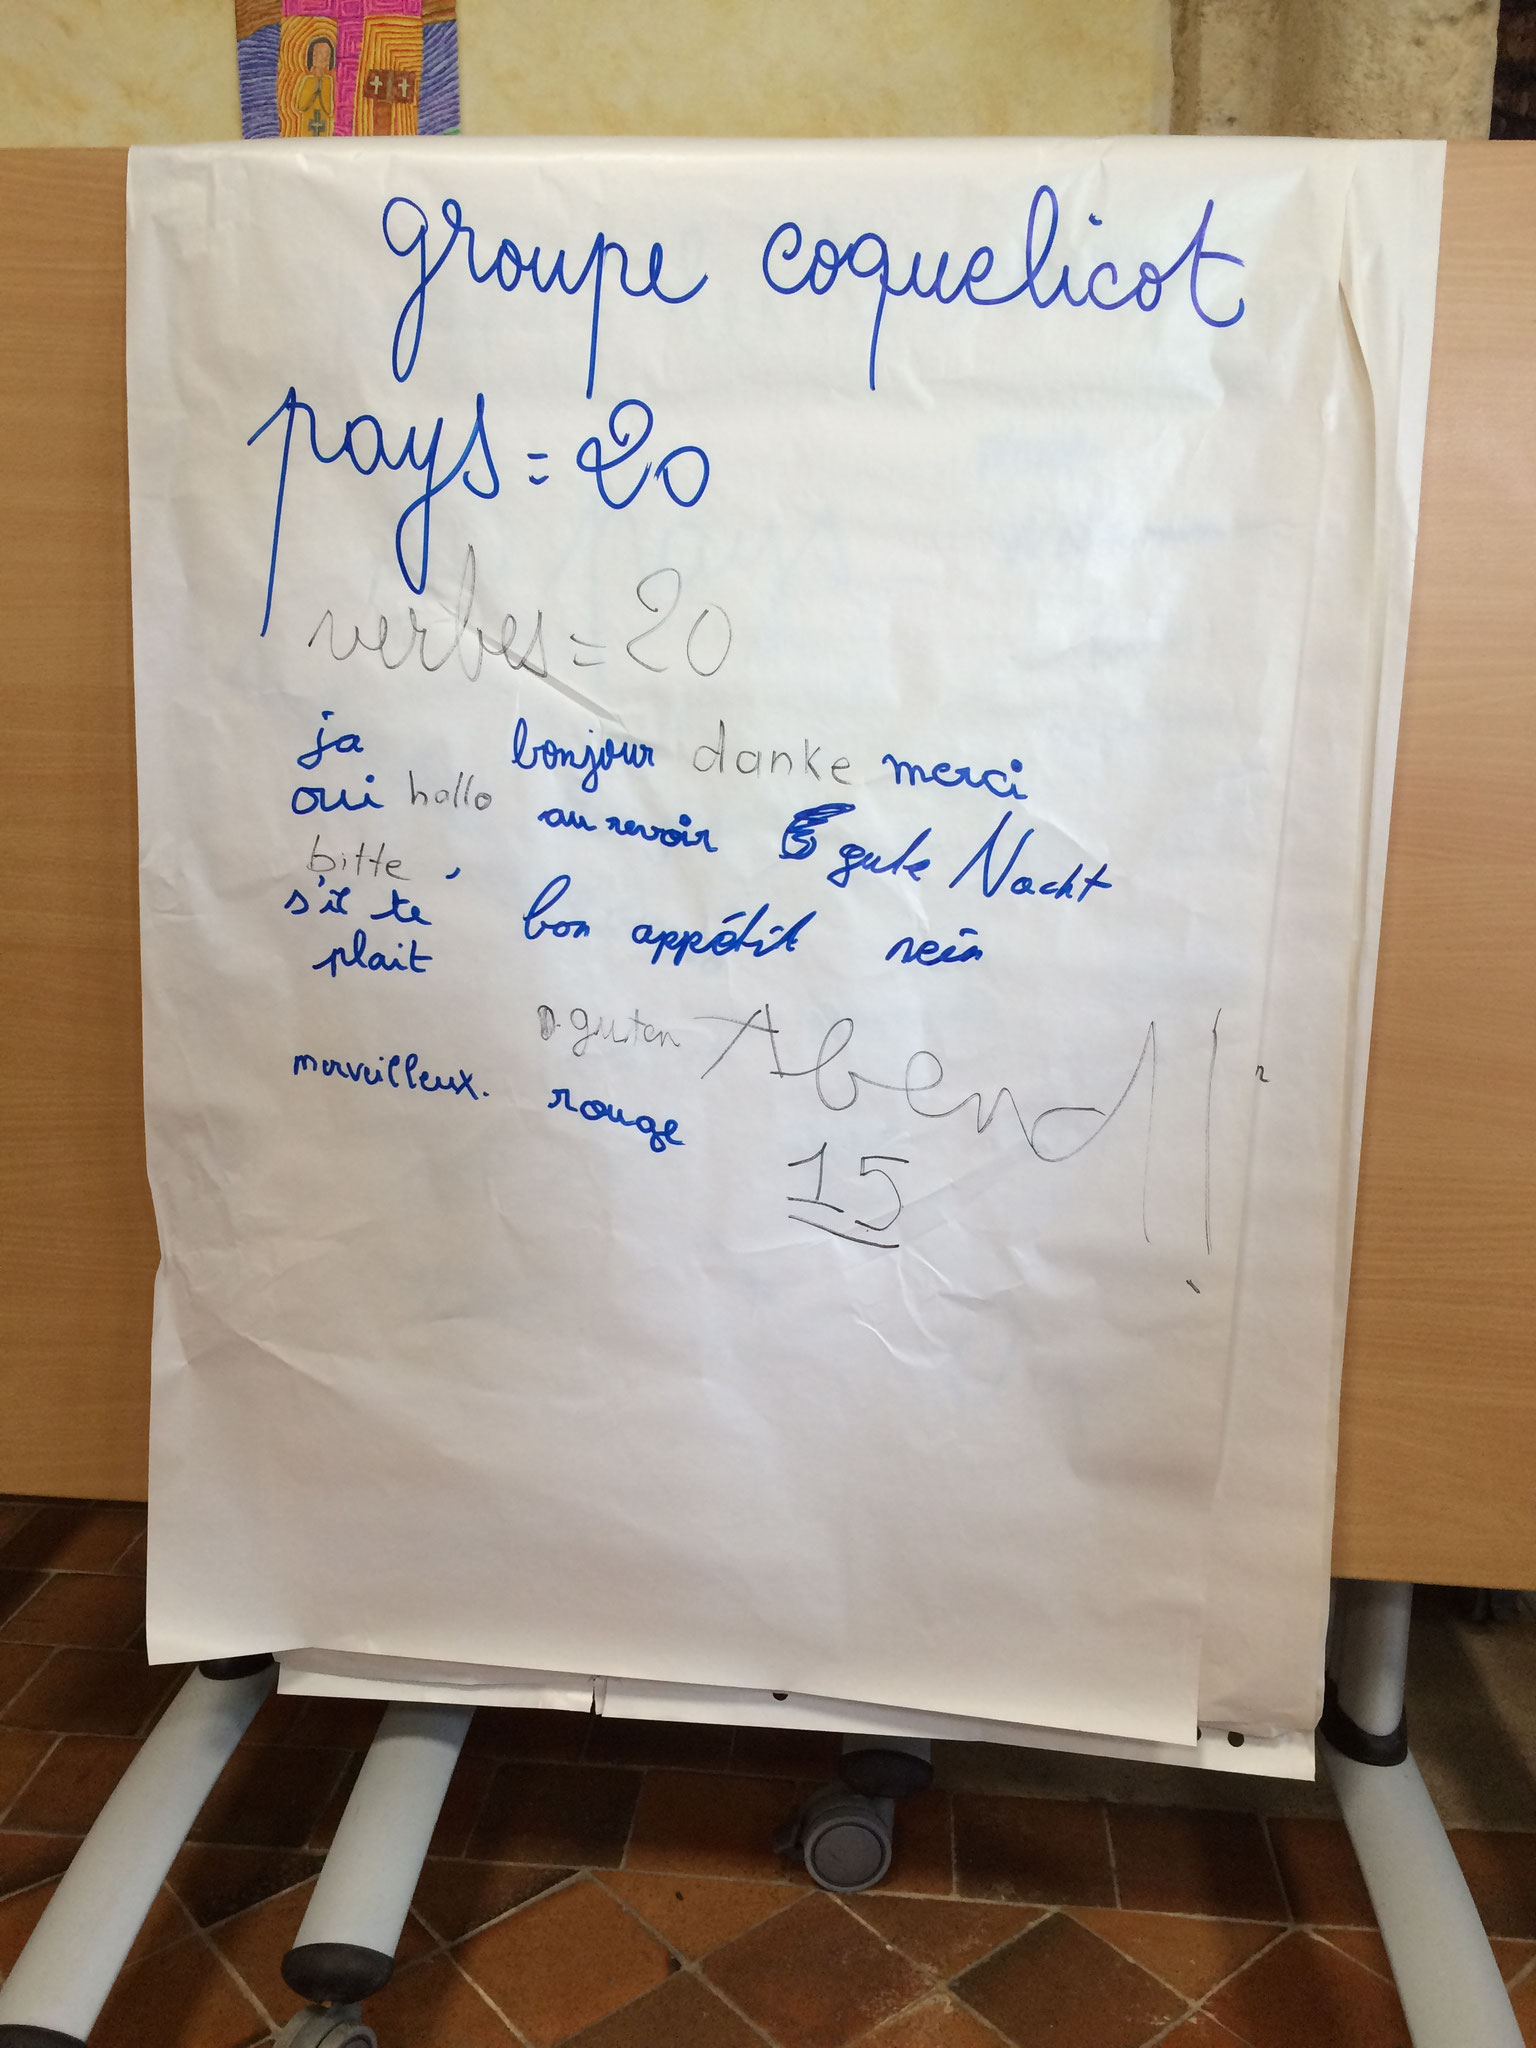 groupe coquelicot
pays = 20
verbes = 20
ja bonjour danke merci
oui hallo au revoir gute Nacht
bitte,
s'il te bon appétit nein
plait
guten Abend!!
merveilleux. rouge
15